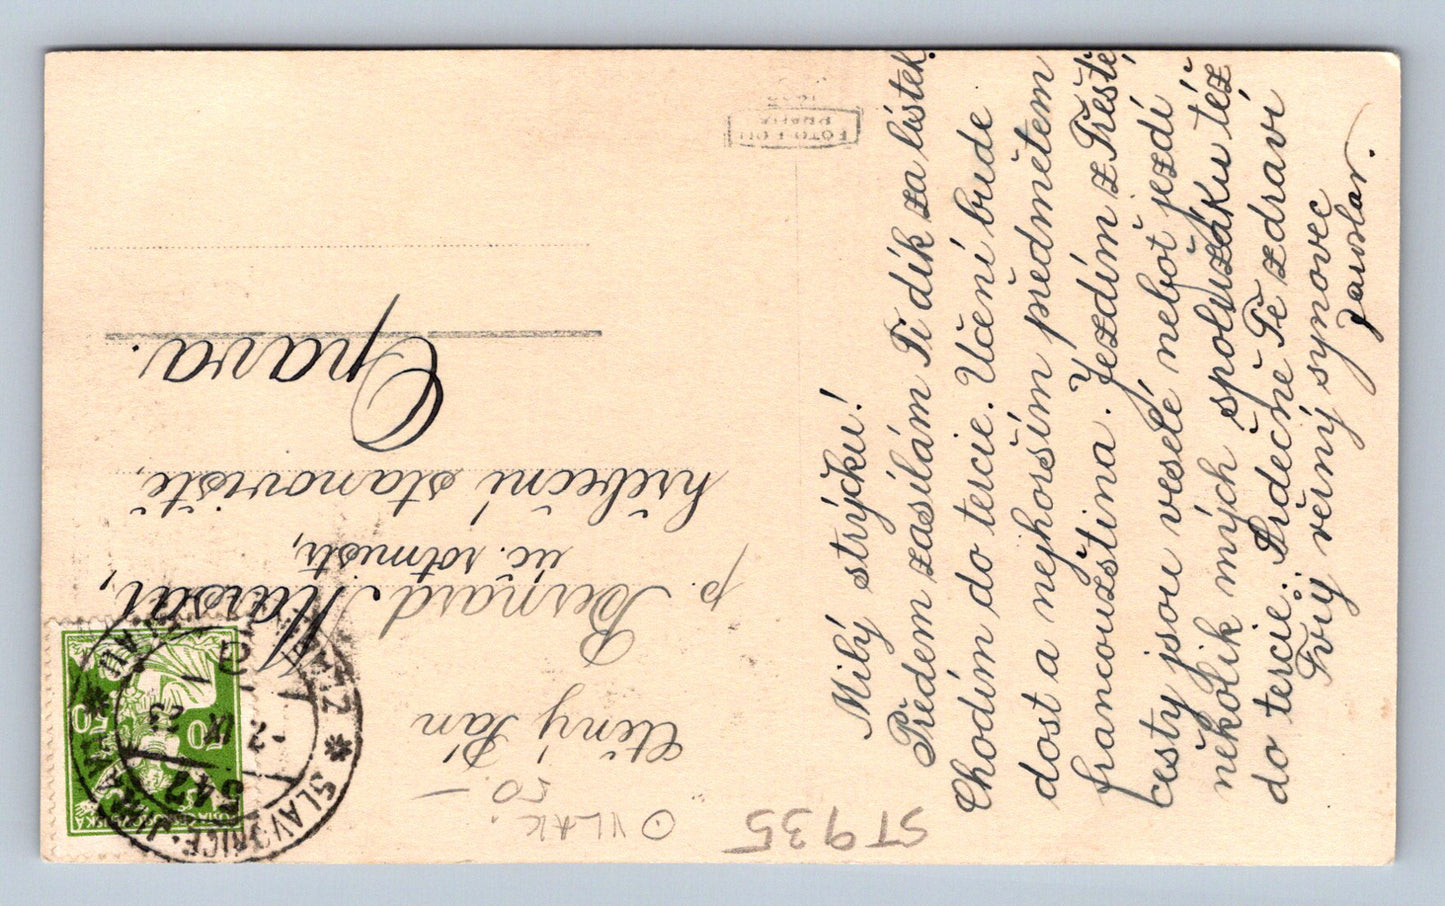 Milý strýčku!
Předem zasílám Ti dík za lístek.
Chodím do tercie. Učení bude
dost a nejhorším předmětem
francouzština. Jezdím z Třeště,
cesty jsou veselé neboť jezdí
několik mých spolužáku též
do tercie. Srdečně Tě zdraví
Tvůj věrný synovec
Jaroslav.
Ctěný Pán
p. Bernard Maršál,
úč. rotmistr,
hřebeční stanoviště,
Opava.
ST935
O VLAK.
50.—
SLAVONICE-JI
547
2 IX 25
50
50
FOTO-FON
PRAHA